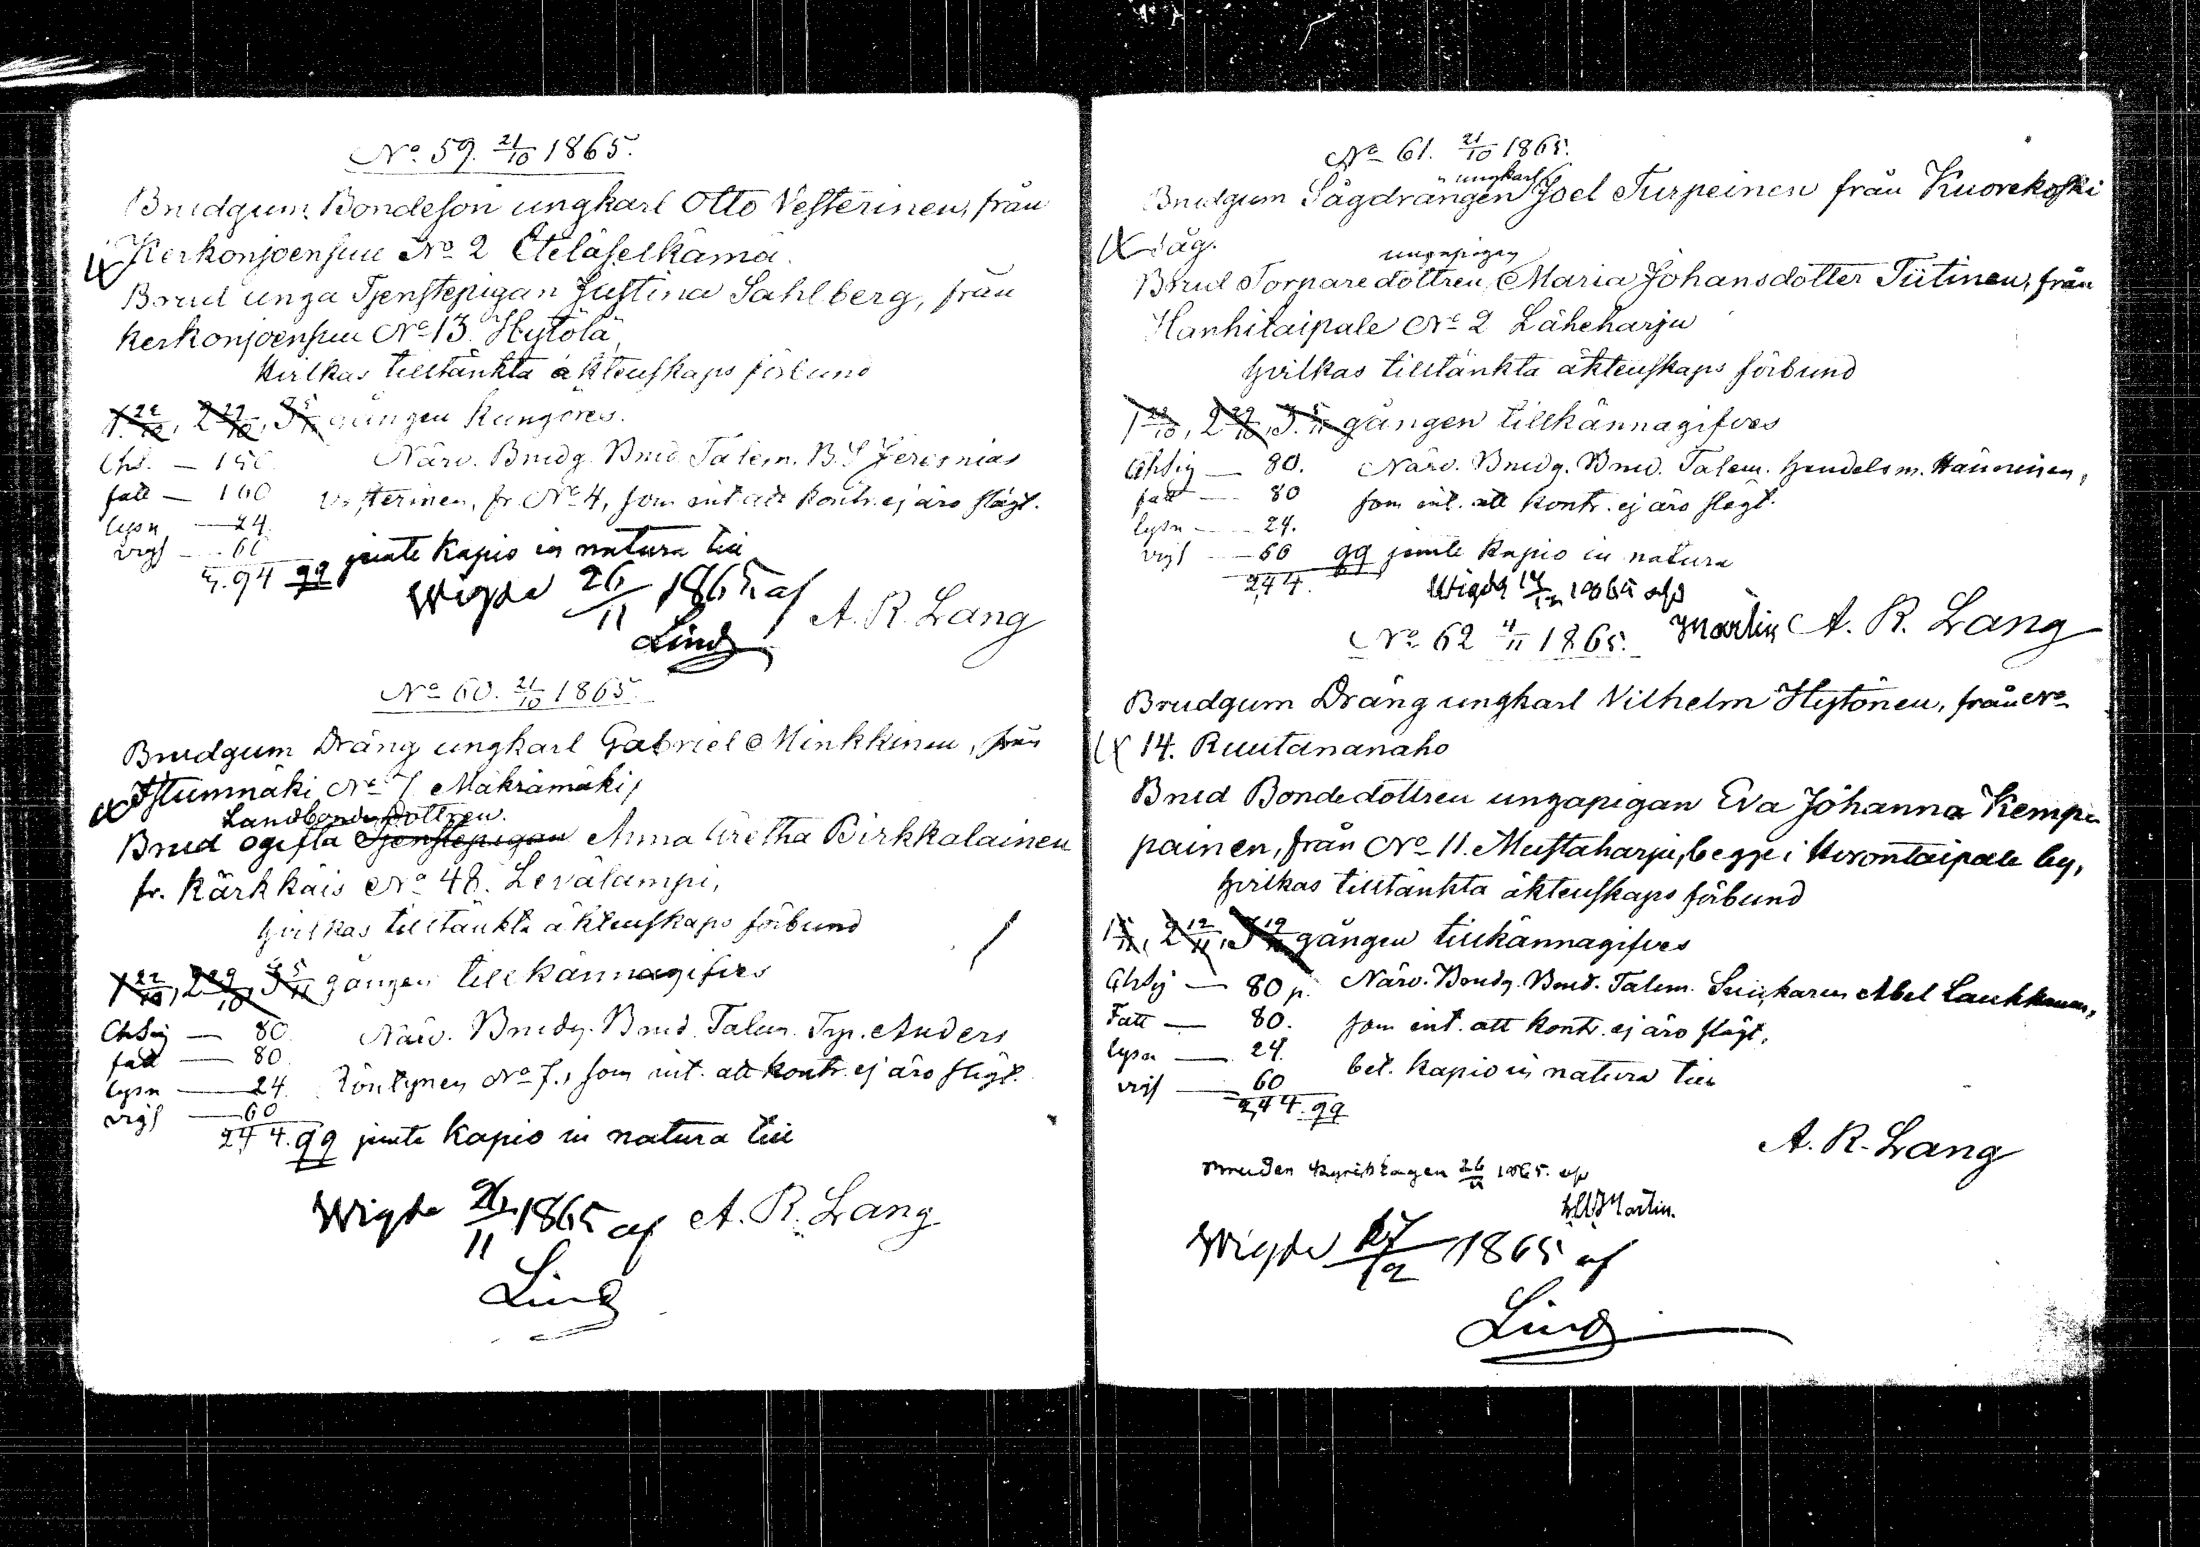 No 59. 21/10 1865.
Brudgum Bondeson ungkarl Otto Vesterinen, från
Kerkonjoensuu No 2 Eteläselkämä.
Brud unga Tjenstepigan Justina Sahlberg, från
Kerkonjoensuu No 13 Hytölä,
Hvilkas tilltänkta äktenskaps förbund
1 22/10, 2 29/10, 3 5/11 gången kungöres.
Närv. Brudg. Brud. Talem. B.S. Jeremias
Chs. — 150
fatt — 160 Vesterinen, fr. No 4, som int. att kontr. ej äro slägt.
lysn — 24
vigs — 60 jemte Kapio in natura till
94 gg
Wigde 26/11 1865 af
A. R. Lang
Lind
No 60. 21/10 1865.
Brudgum Dräng ungkarl Gabriel Minkkinen, från
Istunmäki No 7 Mäkrämäki,
Landbondedottren
Brud ogifta Tjenstepigan Anna Gretha Birkkalainen
fr. Kärkkäis No 48. Levälampi,
hvilkas tilltänkta äktenskaps förbund
1 22/10, 2 29/10, 3 5/11 gången tillkännagifves
ChSig — 80 Närv. Brudg. Brud. Talem. Trp. Anders
fatt — 80
lysn — 24 Röntynen No 7., som int. att kontr. ej äro slägt.
vigs — 60
2,44. gg jemte Kapio in natura till
Wigde 26/11 1865 af A. R. Lang
Lind
No 61. 21/10 1865.
ungkarl
Brudgum Sågdrängen Joel Turpeinen från Kuorekoski
såg.
ungapigan
Brud Torparedottren Maria Johansdotter Tiitinen, från
Hanhitaipale No 2 Läheharju
hvilkas tilltänkta äktenskaps förbund
1 22/10, 2 29/10, 3. 5/11 gången tillkännagifves
ChSig — 80. Närv. Brudg. Brud. Talem. Handelsm. Hänninen,
fatt — 80 som int. att kontr. ej äro slägt.
lysn — 24.
vigs — 60 gg jemte Kapio in natura
2,44.
Wigde 1865 af
Martin A. R. Lang
No 62 4/11 1865.
Brudgum Dräng ungkarl Vilhelm Hytönen, från No
14. Ruutananaho
Brud Bondedottren ungapigan Eva Johanna Kemp-
painen, från No 11. Mustaharju, begge i Kerontaipale by,
hvilkas tilltänkta äktenskaps förbund
1 5/11, 2 12/11, 3 19/11 gången tillkännagifves
ChSig — 80 p. Närv. Brudg. Brud. Talem. Abel Laukkanen,
Fatt — 80. som int. att kontr. ej äro slägt,
lysn — 24.
vigs — 60 bet. Kapio in natura till
2,44. gg
A. R. Lang
Bruden kyrktagen 26/11 1865. af
Martin.
Wigde 27/12 1865 af
Lind